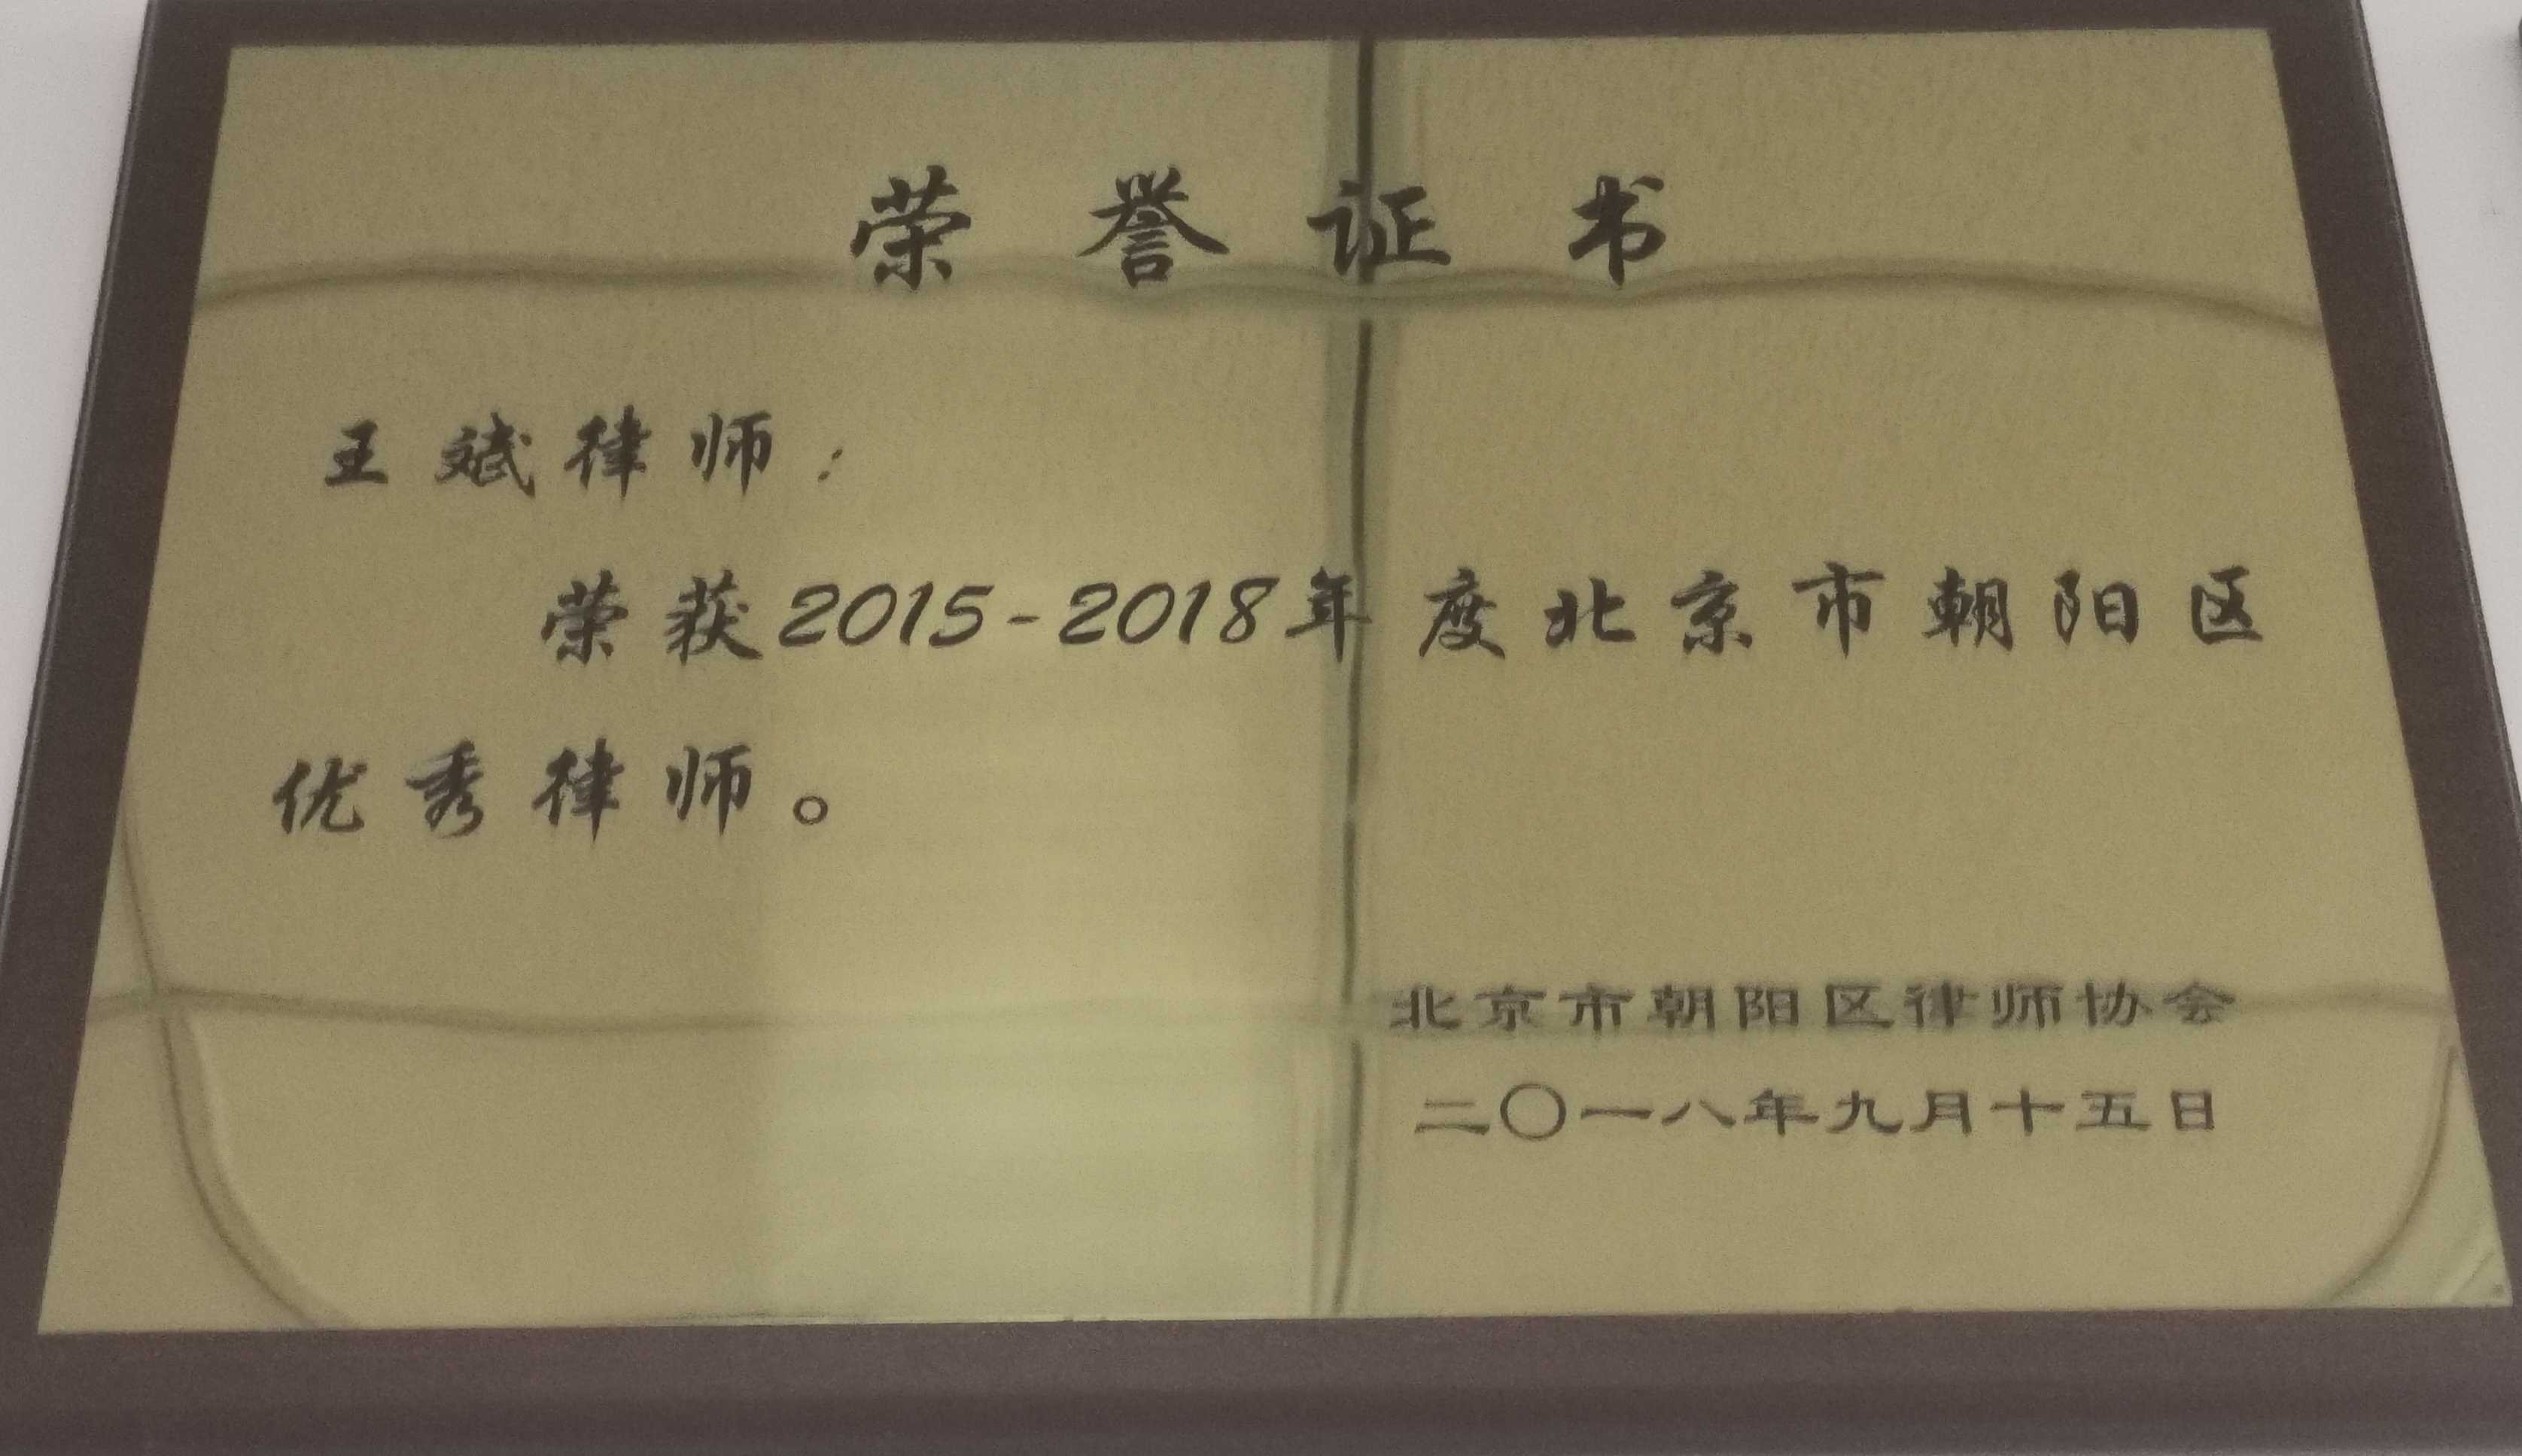 荣誉证书
王斌律师：
荣获2015-2018年度北京市朝阳区
优秀律师。
北京市朝阳区律师协会
二〇一八年九月十五日